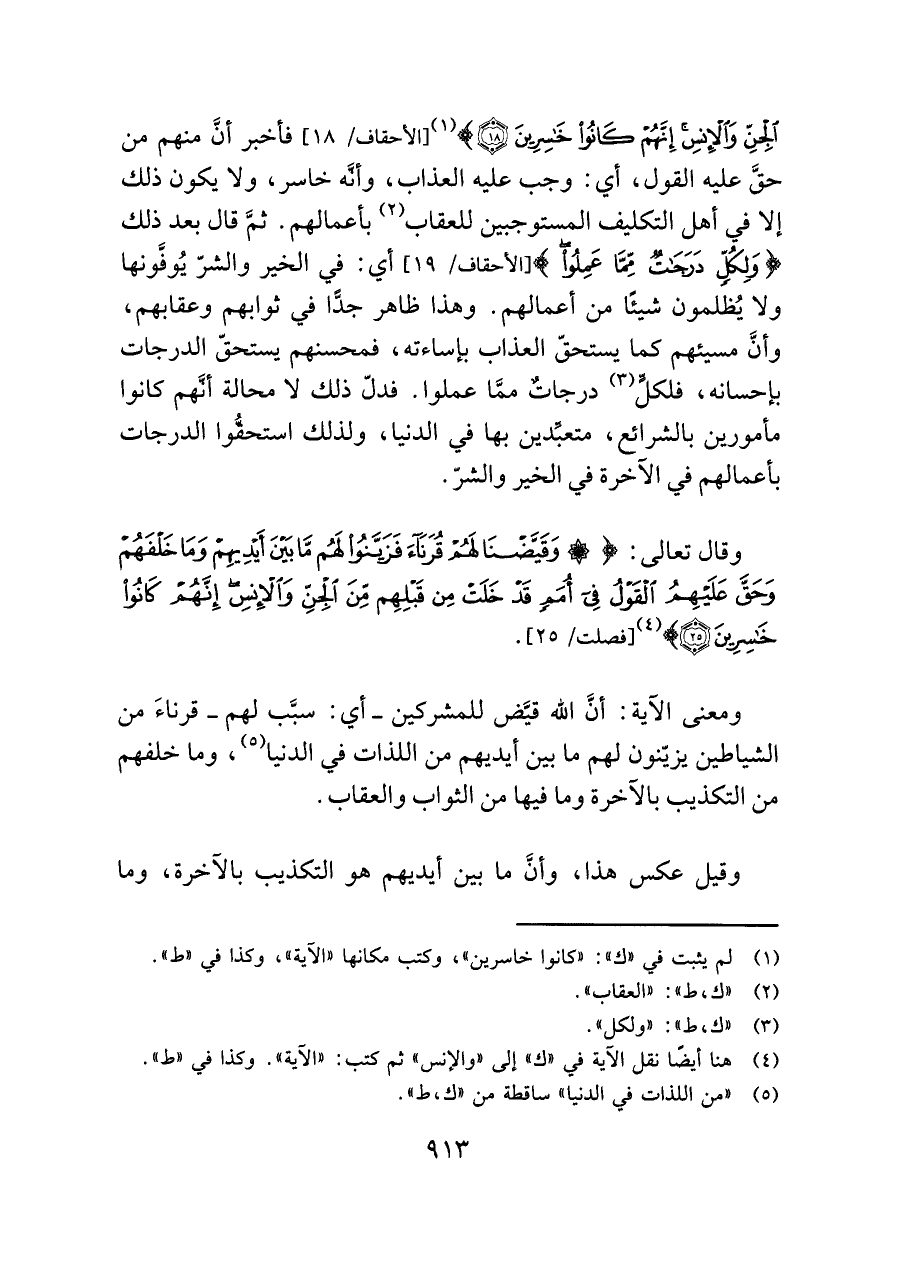 ٱلْجِنِّ وَٱلْإِنسِ ۖ إِنَّهُمْ كَانُوا۟ خَٰسِرِينَ ﴿١٨﴾﴾(١)[الأحقاف/ ١٨] فأخبر أنَّ منهم من
حقَّ عليه القول، أي: وجب عليه العذاب، وأنَّه خاسر، ولا يكون ذلك
إلا في أهل التكليف المستوجبين للعقاب(٢) بأعمالهم. ثمَّ قال بعد ذلك
﴿وَلِكُلٍّ دَرَجَٰتٌ مِّمَّا عَمِلُوا۟ ۖ﴾[الأحقاف/ ١٩] أي: في الخير والشرّ يُوفَّونها
ولا يُظلمون شيئًا من أعمالهم. وهذا ظاهر جدًّا في ثوابهم وعقابهم،
وأنَّ مسيئهم كما يستحقّ العذاب بإساءته، فمحسنهم يستحقّ الدرجات
بإحسانه، فلكلٍّ(٣) درجاتٌ ممَّا عملوا. فدلّ ذلك لا محالة أنَّهم كانوا
مأمورين بالشرائع، متعبِّدين بها في الدنيا، ولذلك استحقُّوا الدرجات
بأعمالهم في الآخرة في الخير والشرّ.
وقال تعالى: ﴿ ۞ وَقَيَّضْنَا لَهُمْ قُرَنَآءَ فَزَيَّنُوا۟ لَهُم مَّا بَيْنَ أَيْدِيهِمْ وَمَا خَلْفَهُمْ
وَحَقَّ عَلَيْهِمُ ٱلْقَوْلُ فِىٓ أُمَمٍ قَدْ خَلَتْ مِن قَبْلِهِم مِّنَ ٱلْجِنِّ وَٱلْإِنسِ ۖ إِنَّهُمْ كَانُوا۟
خَٰسِرِينَ ﴿٢٥﴾﴾(٤)[فصلت/ ٢٥].
ومعنى الآية: أنَّ الله قيَّض للمشركين ـ أي: سبَّب لهم ـ قرناءَ من
الشياطين يزيّنون لهم ما بين أيديهم من اللذات في الدنيا(٥)، وما خلفهم
من التكذيب بالآخرة وما فيها من الثواب والعقاب.
وقيل عكس هذا، وأنَّ ما بين أيديهم هو التكذيب بالآخرة، وما
(١) لم يثبت في «ك»: «كانوا خاسرين»، وكتب مكانها «الآية»، وكذا في «ط».
(٢) «ك، ط»: «العقاب».
(٣) «ك، ط»: «ولكل».
(٤) هنا أيضًا نقل الآية في «ك» إلى «والإنس» ثم كتب: «الآية». وكذا في «ط».
(٥) «من اللذات في الدنيا» ساقطة من «ك، ط».
٩١٣